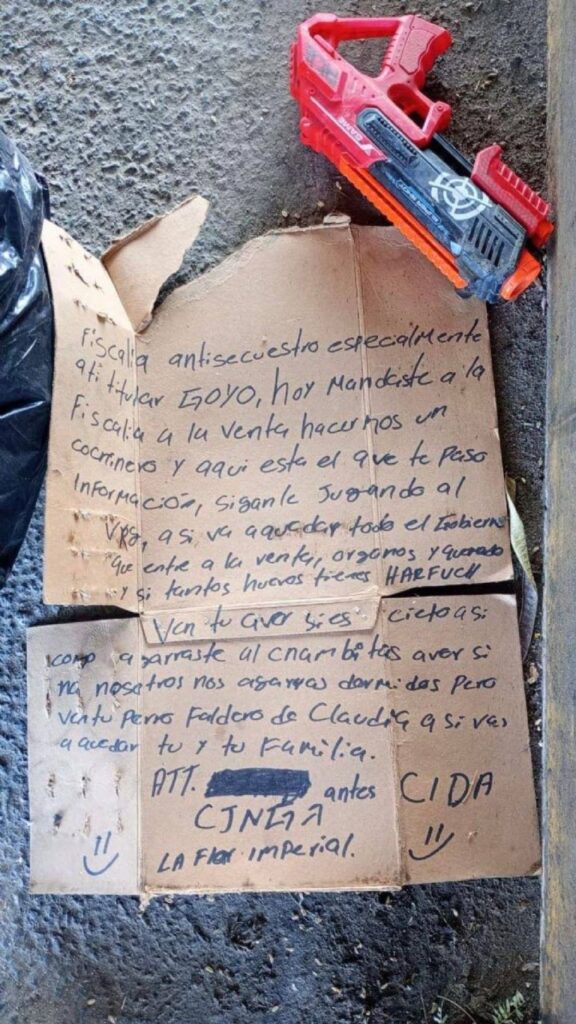 Fiscalia antisecuestro especialmente
ati titular GOYO, hoy Mandaste a la
Fiscalia a la venta hacernos un
cochinero y aqui esta el que te paso
Información, siganle Jugando al
VRg, a si va aquedar todo el Gobierno
que entre a la venta, organos y
y si tantos huevos tienes HARFUCH
Ven tu aver si es cieto asi
como agarraste al chambitas aver si
na nosotros nos agarras dormidos Pero
ven tu Perro Faldero de Claudia a si vas
a quedar tu y tu Familia.
ATT. antes CIDA
CJNGA
LA Flor imperial.
GAME